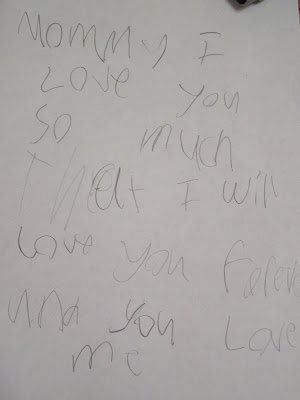 Mommy I
Love You
so much
that I will
Love You Foreve
and you Love
me